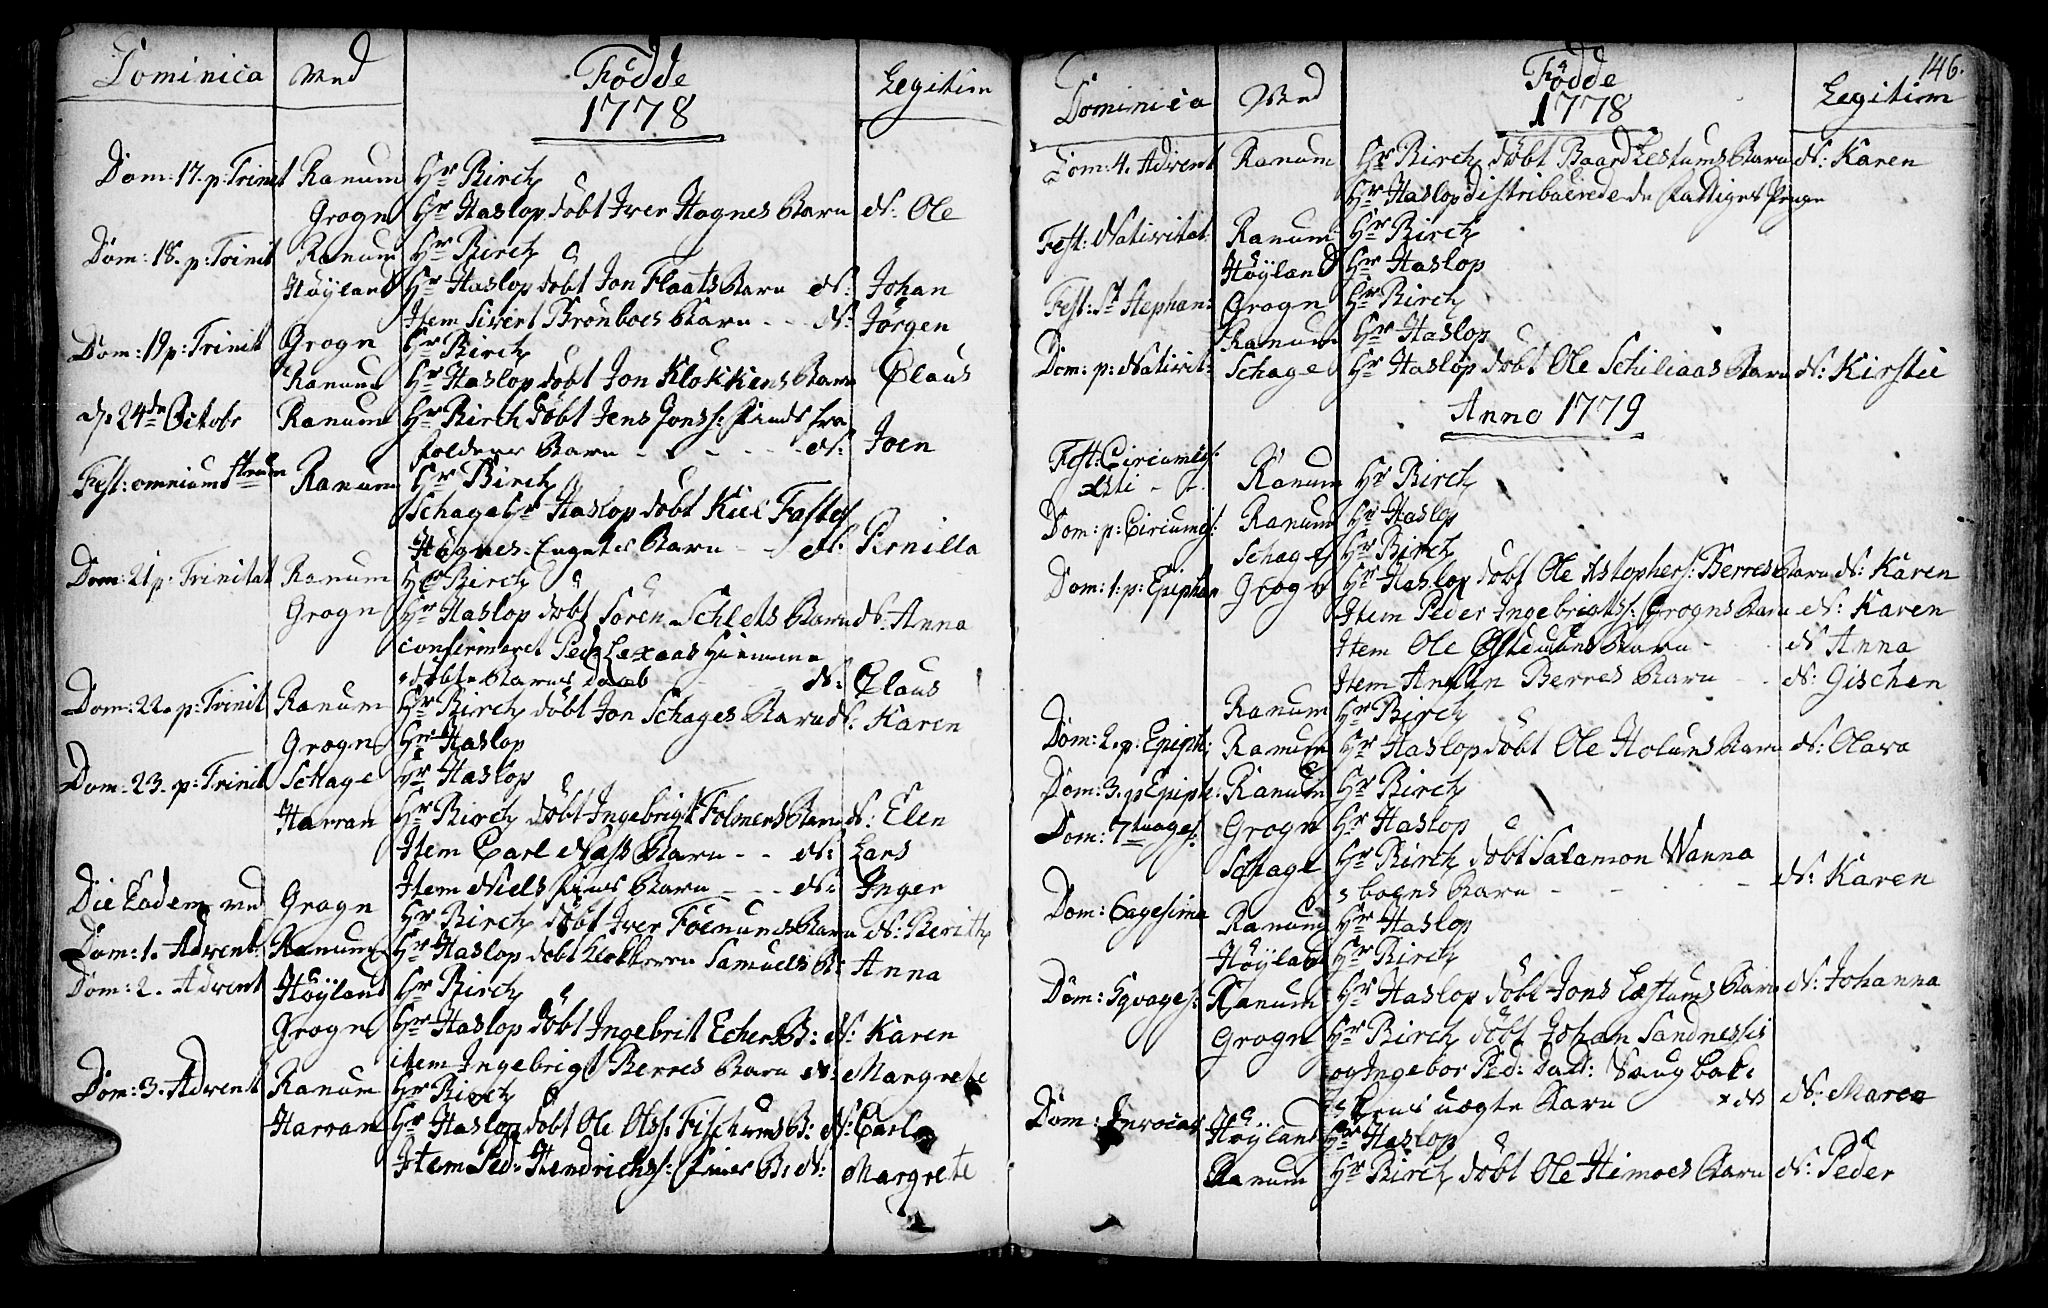 Dominica ved Födde Legitim
1778
Dom: 17. p. Trinit Ranum Hr Birch
Grogn Hr Haslop döbt Iver Hagnes Barn N: Ole
Dom: 18. p: Trinit Ranum Hr Birch
Höyland Hr Haslop döbt Jon Flaats Barn N: Johan
Item Sivert Brönboes Barn - - N: Jörgen
Dom: 19 p: Trinit Grogn Hr Birch
Ranum Hr Haslop döbt Jon Klökkens Barn Claus
d. 24de Octobr Ranum Hr Birch döbt Jens Jonss: fra
Foldens Barn - - - - N: Joen
Fest: omnium Ranum Hr Birch
Schage Hr Haslop döbt Kiel
Barn - - N: Pernilla
Dom: 21 p: Trinitat Ranum Hr Birch
Grogn Hr Haslop döbt Sören Schlets Barn N: Anna
confirmeret Ped: Lexaas Hiemme
döbte Barns daab - - - N: Claus
Dom: 22. p: Trinit Ranum Hr Birch döbt Jon Schages Barn N: Karen
Grogn Hr Haslop
Dom: 23. p: Trinit Schage Hr Haslop
Harran Hr Birch döbt Ingebrigt Folmers Barn N: Elen
Item Carl Næss Barn - - N: Lars
Item Niels Barn - - - N: Inger
Die Eadem ved Grogn Hr Birch döbt Iver Föenunds Barn N: Berith
Dom: 1. Advent: Ranum Hr Haslop döbt Samuels B: Anna
Dom: 2. Advent Höyland Hr Birch
Grogn Hr Haslop döbt Ingebrit Echers B: N: Karen
item Ingebrigt Berres Barn N: Margrete
Dom: 3. Advent Ranum Hr Birch
Harran Hr Haslop döbt Ole Olss: B: N: Carl
Item Ped: Hendrichss: B: N: Margrete
146.
Dominica Ved Födde Legitim
1778
Dom: 4. Advent Ranum Hr Birch döbt Baard Lestums Barn N: Karen
Hr Haslop distribuerede de Fattiges Penge
Fest: Nativitat Ranum Hr Birch
Höyland Hr Haslop
Fest: St Stephan: Grogn Hr Birch
Ranum Hr Haslop
Dom: p: Nativit: Schage Hr Haslop döbt Ole Schiliaas Barn N: Kirstie
Anno 1779
Fest: Circumcis:
Xsti - - Ranum Hr Birch
Dom: p: Circumcis: Ranum Hr Haslop
Schage Hr Birch
Dom: 1: p: Epiphan Grogn Hr Haslop döbt Ole Astophers: Berres Barn N: Karen
Item Peder Ingebrigtss: Grogns Barn N: Karen
Item Ole Barn - N Anna
Item Berres Barn - - N: Gischen
Ranum Hr Birch
Dom: 2. p: Epiph: Ranum Hr Haslop döbt Ole Holums Barn N: Olava
Dom: 3. p Epiph: Ranum Hr Birch
Dom: 7tuages: Grogn Hr Haslop
Schage Hr Birch döbt Salamon Wanna
boens Barn - - - - N: Karen
Dom: 6agesima Ranum Hr Haslop
Höyland Hr Birch
Dom: 5qvages: Ranum Hr Haslop döbt Jons Læstums Barn N: Johanna
Grogn Hr Birch döbt Johan Sandnesses
og Ingebor Ped: Datt:
uægte Barn N: Maren
Dom: Invocav Höyland Hr Haslop
Ranum Hr Birch döbt Ole Himoes Barn N: Peder